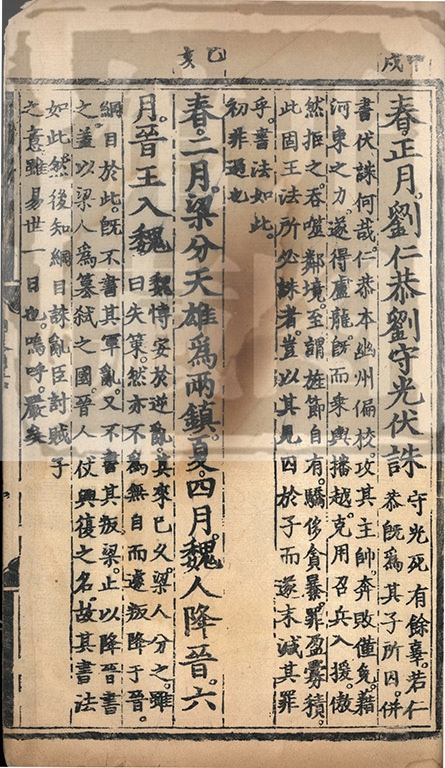 甲戌
春正月。劉仁恭劉守光伏誅
守光死有餘辜。若仁
恭既爲其子所囚。併
書伏誅何哉。仁恭本幽州偏校。攻其主帥。奔敗僅免。藉
河東之力。遂得盧龍。既而乘輿播越。克用召兵入援。傲
然拒之。吞噬鄰境。至謂旌節自有。驕侈貪暴。罪盈釁積。
此固王法所必誅者。豈以其見囚於子而遂末減其罪
乎。書法如此。
初非過也
乙亥
春。二月。梁分天雄爲兩鎮。夏。四月。魏人降晉。六
月。晉王入魏
魏博安於逆亂。其來已久。梁人分之。雖
曰失策。然亦不爲無自而遽叛降于晉。
綱目於此。既不書其軍亂。又不書其叛梁。止以降晉書
之。蓋以梁人爲簒弒之國。晉人仗興復之名。故其書法
如此。然後知綱目誅亂臣討賊子
之意。雖易世一日也。嗚呼。嚴矣